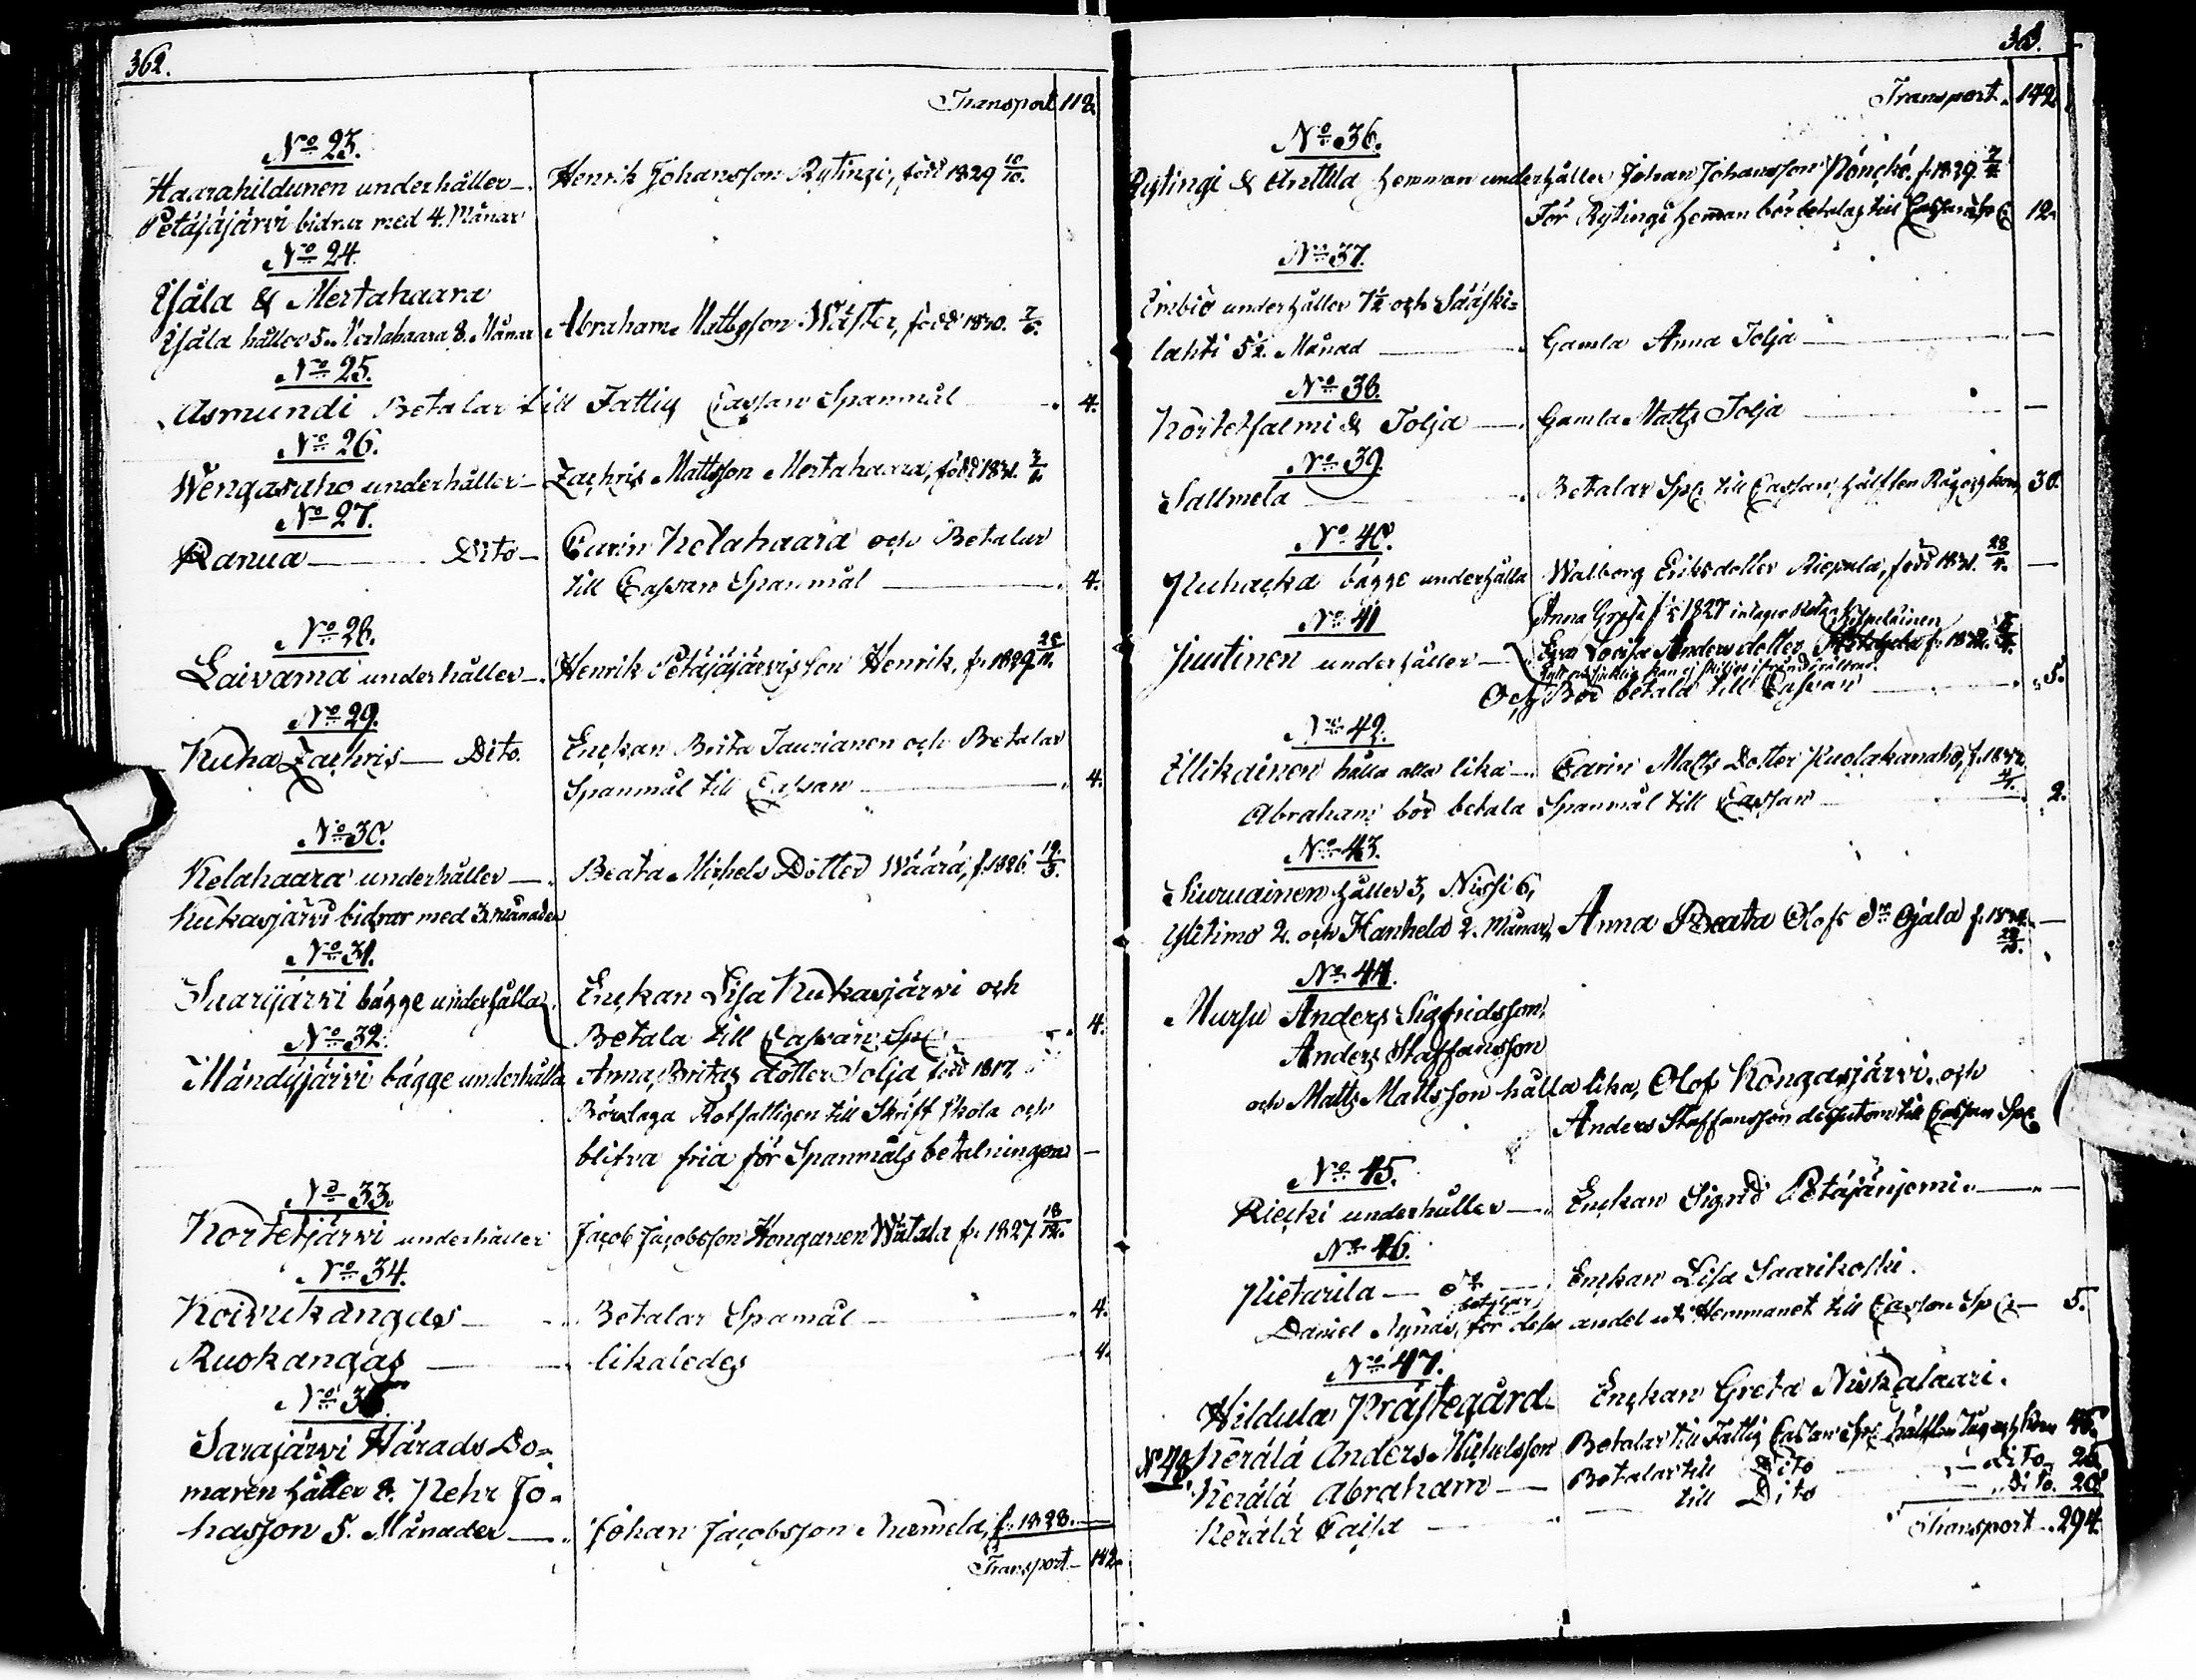 362.
Transport 118.
No 23.
Haarahildunen underhåller — Henrik Johansson Rytingi, född 1829 10/10.
Petäjäjärvi bidrar med 4. Månar
No 24.
Yjälä & Mertahaara
Yjälä håller 5. Mertahaara 8. Månar Abraham Mattsson född 1830. 7/6.
No 25.
Asmundi Betalar till Fattig Cassan Spanmål — 4.
No 26.
underhåller — Zachris Mattsson Mertahaara, född 1831.
No 27.
Ranua — Dito — Carin Kelahaara och Betalar
till Cassan Spanmål — 4.
No 28.
Laivama underhåller — Henrik Petäjäjärvis son Henrik, f. 1829
No 29.
Kuha Zachris — Dito. Enckan Brita Taurianen och Betalar
Spanmål till Cassan — 4.
No 30.
Kelahaara underhåller — Beata Michels Dotter Wäärä, f. 1826. 19/3.
Kukasjärvi bidrar med 3. månader
No 31.
Saarijärvi bägge underhålla Enckan Lisa Kukasjärvi och
Betala till Cassan Sp. — 4.
No 32.
Mändyjärvi bägge underhålla Anna Britas dotter Tolja född 1817.
Böra laga Rotfattigen till Skrift skola och
blifva fria för Spanmåls betalningen —
No 33.
Kortetjärvi underhåller Jacob Jacobsson Konganen f. 1827 18/12.
No 34.
Koivukangas — Betalar Spamål — 4.
Ruokangas — likaledes — 4.
No 35.
Sarajärvi Härads Do-
maren håller 8. Pehr Jo-
hasson 5. Månader — Johan Jacobsson f. 1828. —
Transport — 142.
363.
Transport. 142.
No 36.
Rytingi & Anttila hemman underhåller Johan Johansson f. 1829.
För Rytingi heman bör betalas till Cassan Sp. 12.
No 37.
Embiö underhåller 7½ och Sääski-
lahti 5½. Månad — Gamla Anna Tolja — —
No 38.
Kortetsalmi & Tolja — Gamla Matts Tolja — —
No 39.
Sallmela — Betalar Sp. till Cassan, hälften Råg och korn 30.
No 40.
bägge underhålla Walborg Eriksdotter född 1831. 28/4. —
No 41
Anna Greta 1827
Juutinen underhåller — Eva Lovisa Andersdotter
Och Bör betala till Cassan — 5.
No 42.
Ellikainen hålla alla lika — Carin Matts Dotter Puolakanaho, f.
Abraham bör betala Spanmål till Cassan — 2.
No 43.
Siuruainen håller 3, Nissi 6,
Ylitimo 2. och Kanhela 2. Månar, Anna Beata Olofs Dr Ojala f. —
No 44.
Mursu Anders Sigfridsson
Anders Staffansson
och Matts Mattsson hålla lika, Olof Kongasjärvi. och
Anders Staffansson dessutom till Cassan Sp.
No 45.
Riecki underhåller — Enckan Sigrid —
No 46.
Pietarila — Do — Enckan Lisa Saarikoski.
betalar
Daniel för dess andel uti Hemmanet till Cassan Sp. — 5.
No 47.
Hildula Prästegård. Enckan Greta Niskalaari.
No 48. Kerälä Anders Michelsson Betalar till Fattig Cassan Sp. hälften råg och korn
Kerälä Abraham — Betalar till Dito — dito.
Kerälä Cajsa — till Dito — dito. 20.
Transport — 294.